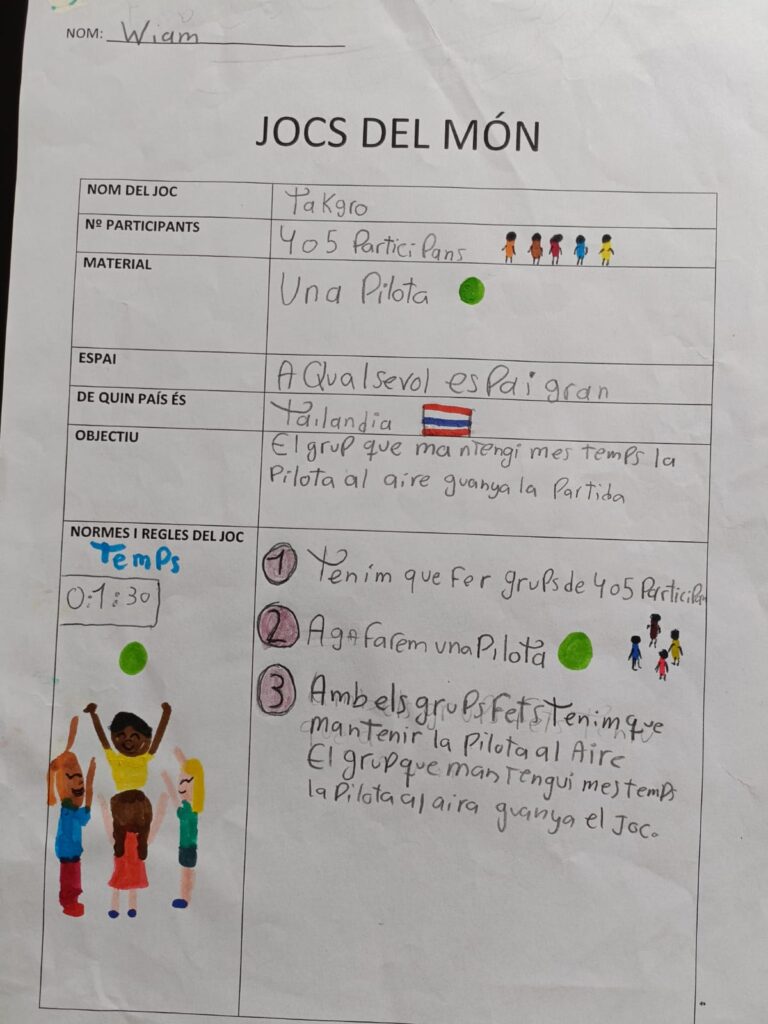 NOM: Wiam
JOCS DEL MÓN
NOM DEL JOC
Takgro
Nº PARTICIPANTS
4 o 5 Participans
MATERIAL
Una Pilota
ESPAI
A Qualsevol espai gran
DE QUIN PAÍS ÉS
Tailandia
OBJECTIU
El grup que mantengi mes temps la
Pilota al aire guanya la Partida
NORMES I REGLES DEL JOC
Temps
0:1:30
1 Tenim que fer grups de 4 o 5 Participan
2 Agafarem una Pilota
3 Amb els grups fets Tenim que
mantenir la Pilota al Aire
El grup que mantengui mes temps
la Pilota al aira guanya el Joc.